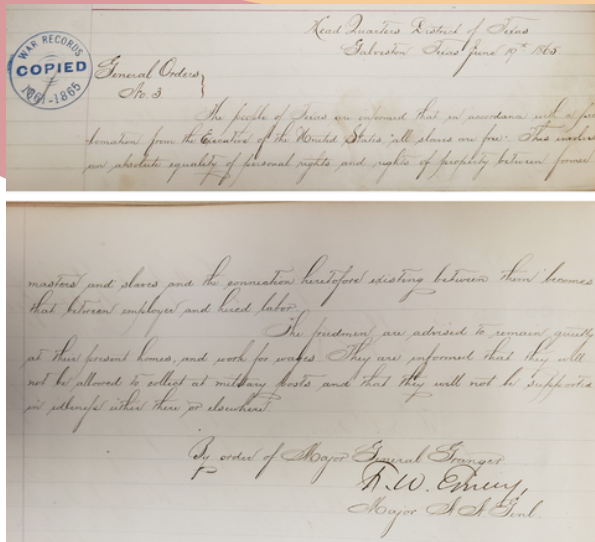 Head Quarters District of Texas
Galveston Texas June 19th 1865
WAR RECORDS
COPIED
1861-1865
General Orders
No. 3
The people of Texas are informed that in accordance with a pro
clamation from the Executive of the United States, "all slaves are free." This involves
an absolute equality of personal rights and rights of property between former
masters and slaves and the connection heretofore existing between them becomes
that between employer and hired labor.
The freedmen are advised to remain quietly
at their present homes, and work for wages. They are informed that they will
not be allowed to collect at military posts and that they will not be supported
in idleness either there or elsewhere.
By order of Major General Granger
F. W. Emery,
Major A. A. Genl.